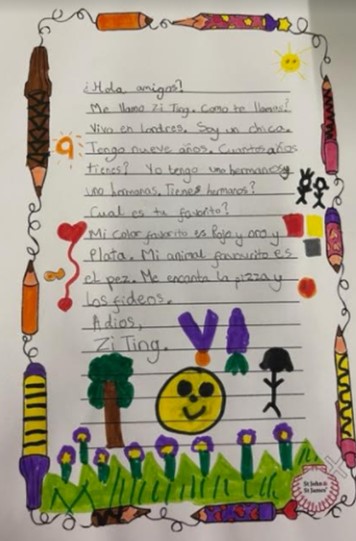 ¿Hola amigos!
Me llamo Zi Ting. Como te llamas?
Vivo en Londres. Soy un chica.
Tengo nueve años. Cuantos años
tienes? Yo tengo uno hermanos y
una hermanas. Tienes humanos?
Cual es tu favorito?
Mi color favorito es Rojo y oro y
Plata. Mi animal favourito es
el pez. Me encanta la pizza y
los fideos.
Adios,
Zi Ting.
9
St John &
St James'